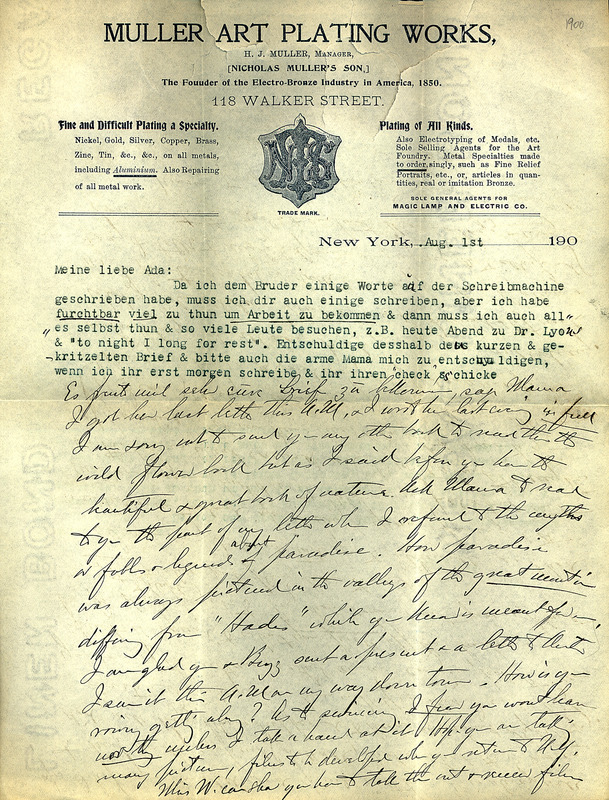 1900
MULLER ART PLATING WORKS,
H. J. MULLER, MANAGER,
[NICHOLAS MULLER'S SON,]
The Founder of the Electro-Bronze Industry in America, 1850.
118 WALKER STREET.
Fine and Difficult Plating a Specialty.
Nickel, Gold, Silver, Copper, Brass,
Zinc, Tin, &c., &c., on all metals,
including Aluminium. Also Repairing
of all metal work.
TRADE MARK.
Plating of All Kinds.
Also Electrotyping of Medals, etc.
Sole Selling Agents for the Art
Foundry. Metal Specialties made
to order, singly, such as Fine Relief
Portraits, etc., or, articles in quan-
tities, real or imitation Bronze.
SOLE GENERAL AGENTS FOR
MAGIC LAMP AND ELECTRIC CO.
New York, Aug. 1st 190
Meine liebe Ada:
Da ich dem Bruder einige Worte auf der Schreibmachine
geschrieben habe, muss ich dir auch einige schreiben, aber ich habe
furchtbar viel zu thun um Arbeit zu bekommen & dann muss ich auch all"
"es selbst thun & so viele Leute besuchen, z.B. heute Abend zu Dr. Lyons
& "to night I long for rest". Entschuldige desshalb des kurzen & ge-
kritzelten Brief & bitte auch die arme Mama mich zu entschuldigen,
wenn ich ihr erst morgen schreibe & ihr ihren check schicke
Es freut mich sehr eure Brief zu bekommen, sag Mama
I got her last letter this A.M., & wrote her last evening in full
I am sorry not to send you any other book to read than the
wild flower book but as I said before you have the
beautiful & great book of nature. Ask Mama to read
to you the part of my letter when I referred to the myths
or folks & legends of about paradise. How paradise
was always pictured in the valleys of the great mountain
differing from "Hades" which you know is meant for
I am glad you & Buzz sent a present & a letter to
I saw it this A.M. on my way down town. How is your
rowing gett' along? As to swimming I fear you won't learn
unless I take a hand at it. Hope you are tak'
many pictures, films to be developed when you return to
Miss W. can show you how to take them out & renew films